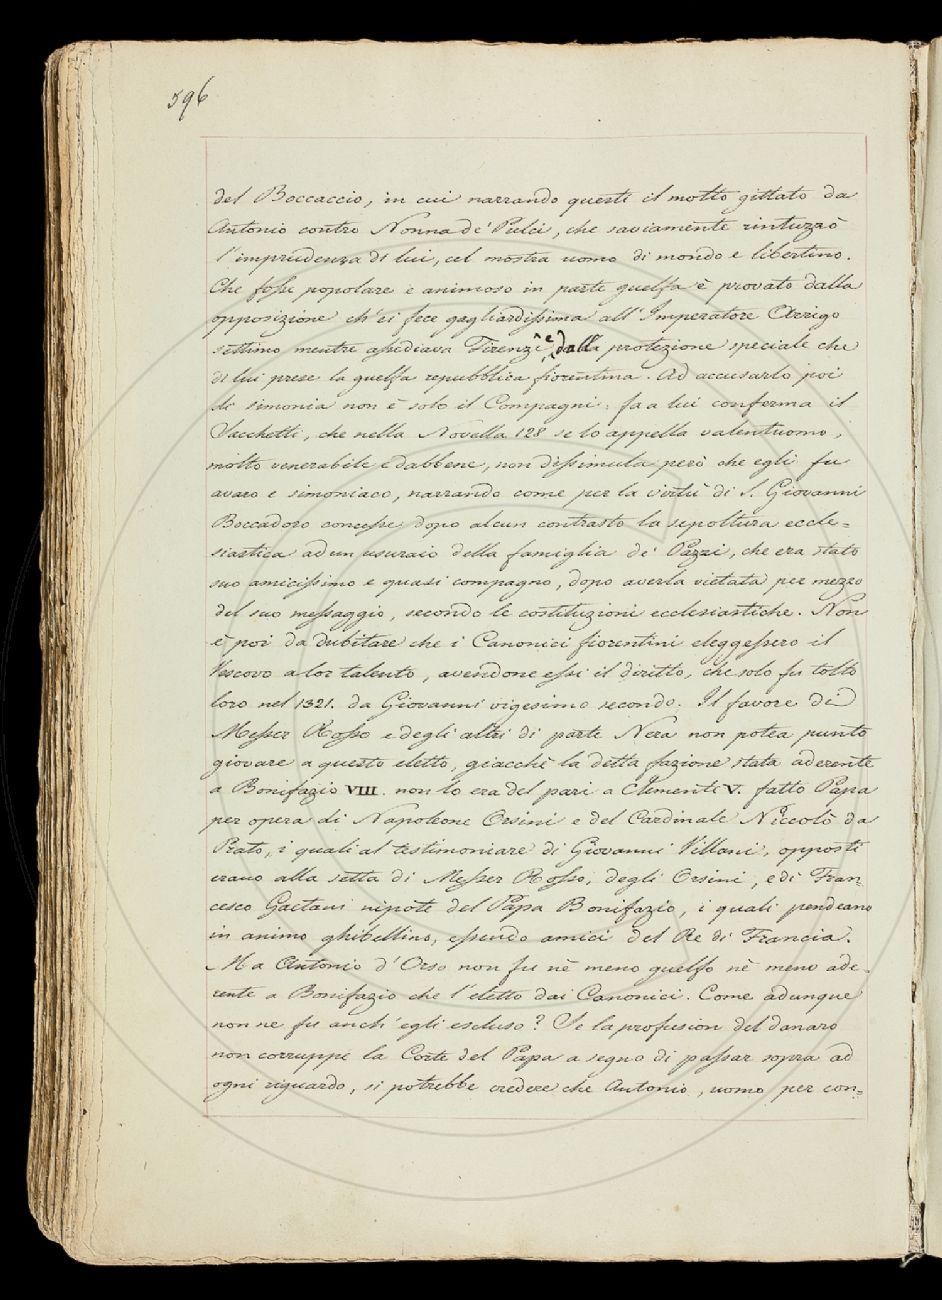 596
del Boccaccio, in cui narrando questi il motto gittato da
Antonio contro Nonna de' Pulci, che saviamente rintuzzò
l'imprudenza di lui, cel mostra uomo di mondo e libertino.
Che fosse popolare e animoso in parte guelfa è provato dalla
opposizione ch'ei fece gagliardissima all'Imperatore Arrigo
settimo mentre assediava Firenze, e dalla protezione speciale che
di lui prese la guelfa repubblica fiorentina. Ad accusarlo poi
di simonia non è solo il Compagni: fa a lui conferma il
Sacchetti, che nella Novella 128 se lo appella valentuomo,
molto venerabile e dabbene, non dissimula però che egli fu
avaro e simoniaco, narrando come per la virtù di S. Giovanni
Boccadoro concesse dopo alcun contrasto la sepoltura eccle=
siastica ad un usuraio della famiglia de' Pazzi, che era stato
suo amicissimo e quasi compagno, dopo averla vietata per mezzo
del suo messaggio, secondo le costituzioni ecclesiastiche. Non
è poi da dubitare che i Canonici fiorentini eleggessero il
Vescovo a lor talento, avendone essi il diritto, che solo fu tolto
loro nel 1321. da Giovanni vigesimo secondo. Il favore di
Messer Rosso e degli altri di parte Nera non potea punto
giovare a questo eletto, giacchè la detta fazione stata aderente
a Bonifazio VIII. non lo era del pari a Clemente V. fatto Papa
per opera di Napoleone Orsini e del Cardinale Niccolò da
Prato, i quali al testimoniare di Giovanni Villani, opposti
erano alla setta di Messer Rosso, degli Orsini, e di Fran=
cesco Gaetani nipote del Papa Bonifazio, i quali pendeano
in animo ghibellino, essendo amici del Re di Francia.
Ma Antonio d'Orso non fu nè meno guelfo nè meno ade=
rente a Bonifazio che l'eletto dai Canonici. Come adunque
non ne fu anch'egli escluso? Se la profusion del danaro
non corruppe la Corte del Papa a segno di passar sopra ad
ogni riguardo, si potrebbe credere che Antonio, uomo per con=